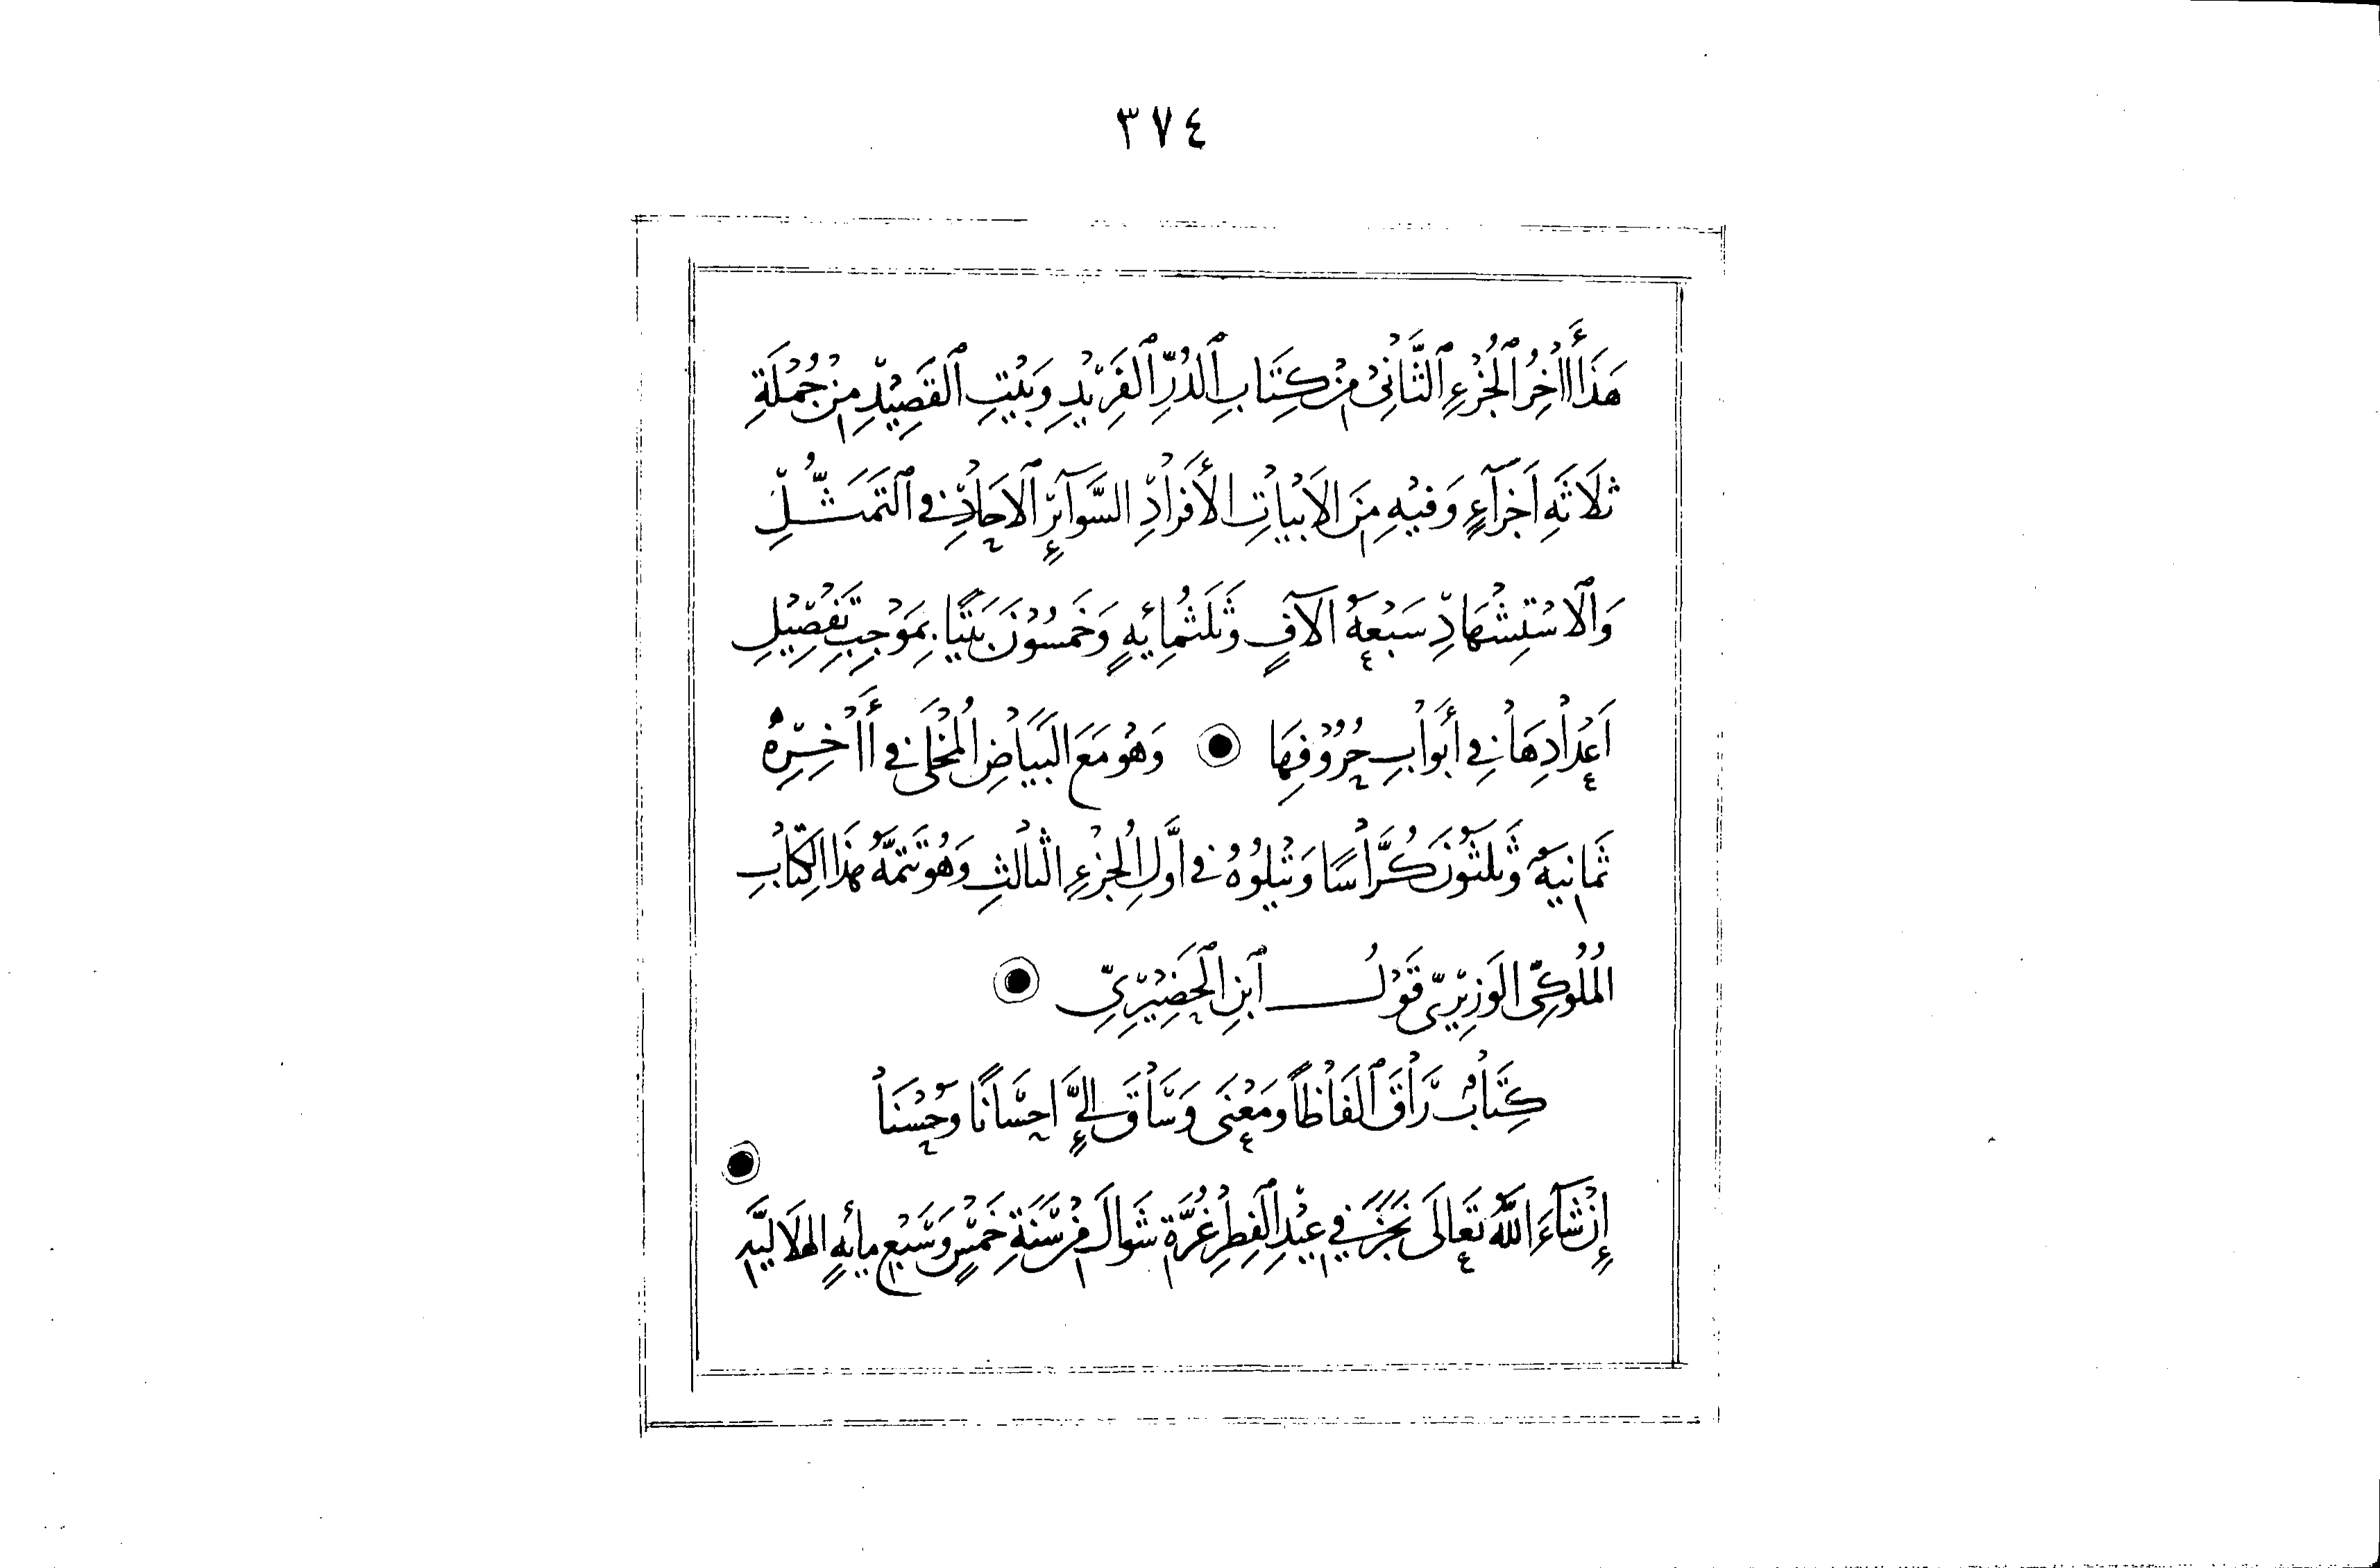 ٣٧٤
هَذَا أَاخِرُ الجُزْءِ الثَّانِيْ مِنْ كِتَابِ الدُرِّ الفَرِيْدِ وَبَيْتِ القَصِيْدِ مِنْ جُمْلَةِ
ثَلَاثَةِ اَجْزَآءٍ وَفِيْهِ مِنَ الاَبْيَاتِ الأَفْرَادِ السَّوَآئِرِ الاحَادِ فِي التَمَثُّلِ
وَالاسْتِشْهَادِ سَبْعَةُ آلافٍ وَثَلَثُمِائِةٍ وَخَمْسُوْنَ بَيْتًا بِمَوْجِبِ تَفْصِيْلِ
اَعْدَادِهَا فِي أَبْوَابِ حُرُوْفِهَا وَهُوَ مَعَ البَيَاضِ المُخْلَى فِي أَاخِرِهِ
ثَمَانِيَةُ وَثَلثُوْنَ كُرَّاسًا وَيَتْلُوْهُ فِي اَوَّلِ الجُزْءِ الثالثِ وَهُوَ تَتِمَّةُ هَذَا الكِتَابِ
المُلُوكِيِّ الوَزِيْرِيِّ قَوْلُ ابْنِ الحَضِيْرِيِّ
كِتَابٌ رَاقَ الفَاظاً وَمَعْنَى وَسَاقَ إِلَيَّ احسَانًا وَحُسْنَا
إِنْ شَآءَ اللَّهُ تَعَالَى نَجَزَ فِي عِيْدِ الفِطْرِ غُرَّةِ شَوالَ مِنْ سَنَةِ خَمْسٍ وَسَبْعِ مِائَةٍ الهلَاليَّةِ